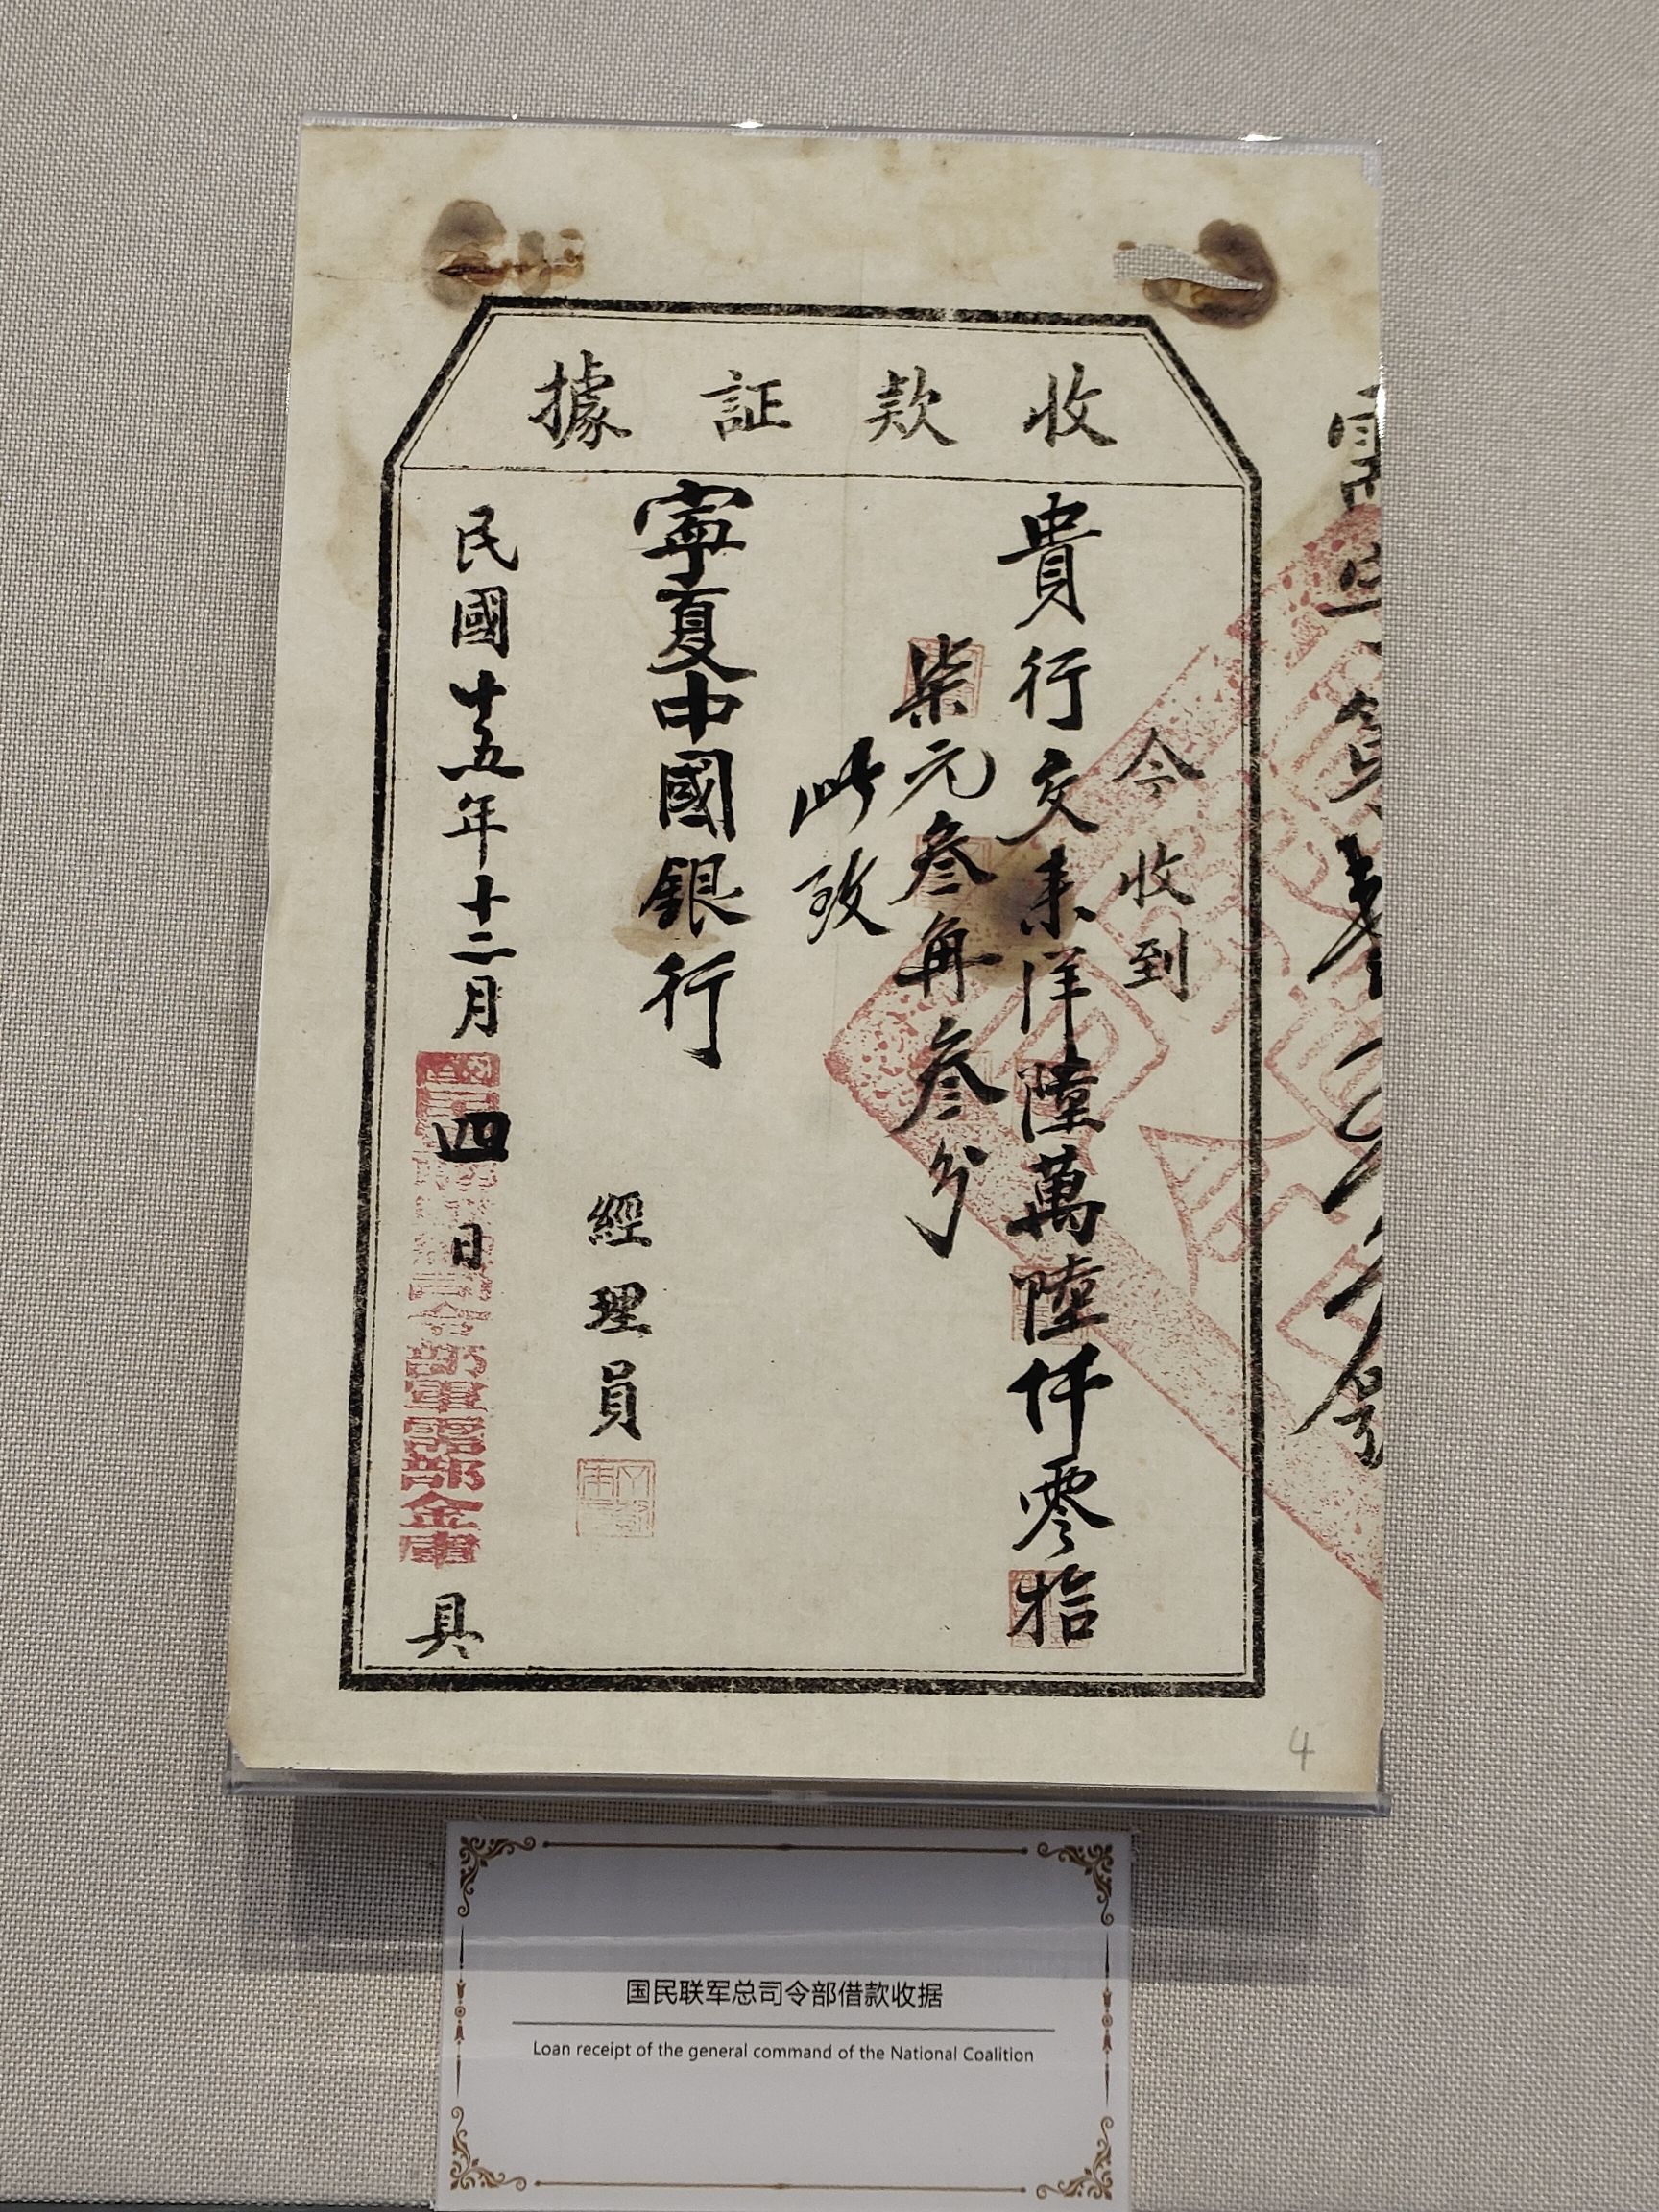 收款証據
今收到
貴行交来洋陸萬陸仟零拾
柒元叁角叁分
此致
寧夏中國銀行
經理員
民國十五年十二月四日
部軍需部金庫
具
4
国民联军总司令部借款收据
Loan receipt of the general command of the National Coalition